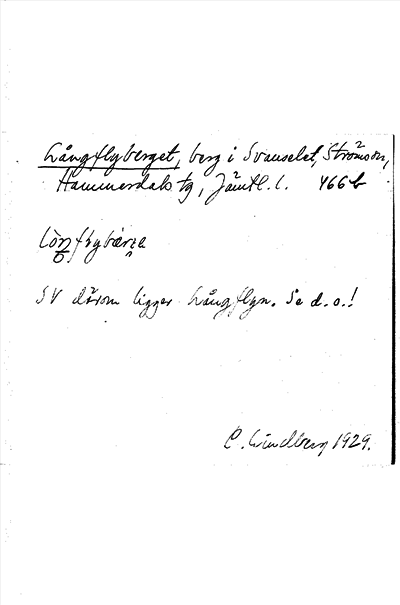 Långflyberget, berg i Svanselet, Ströms sn,
Hammerdals tg, Jämtl. l. 466b
SV därom ligger Långflyn. Se d.o.!
C. Lindberg 1929.